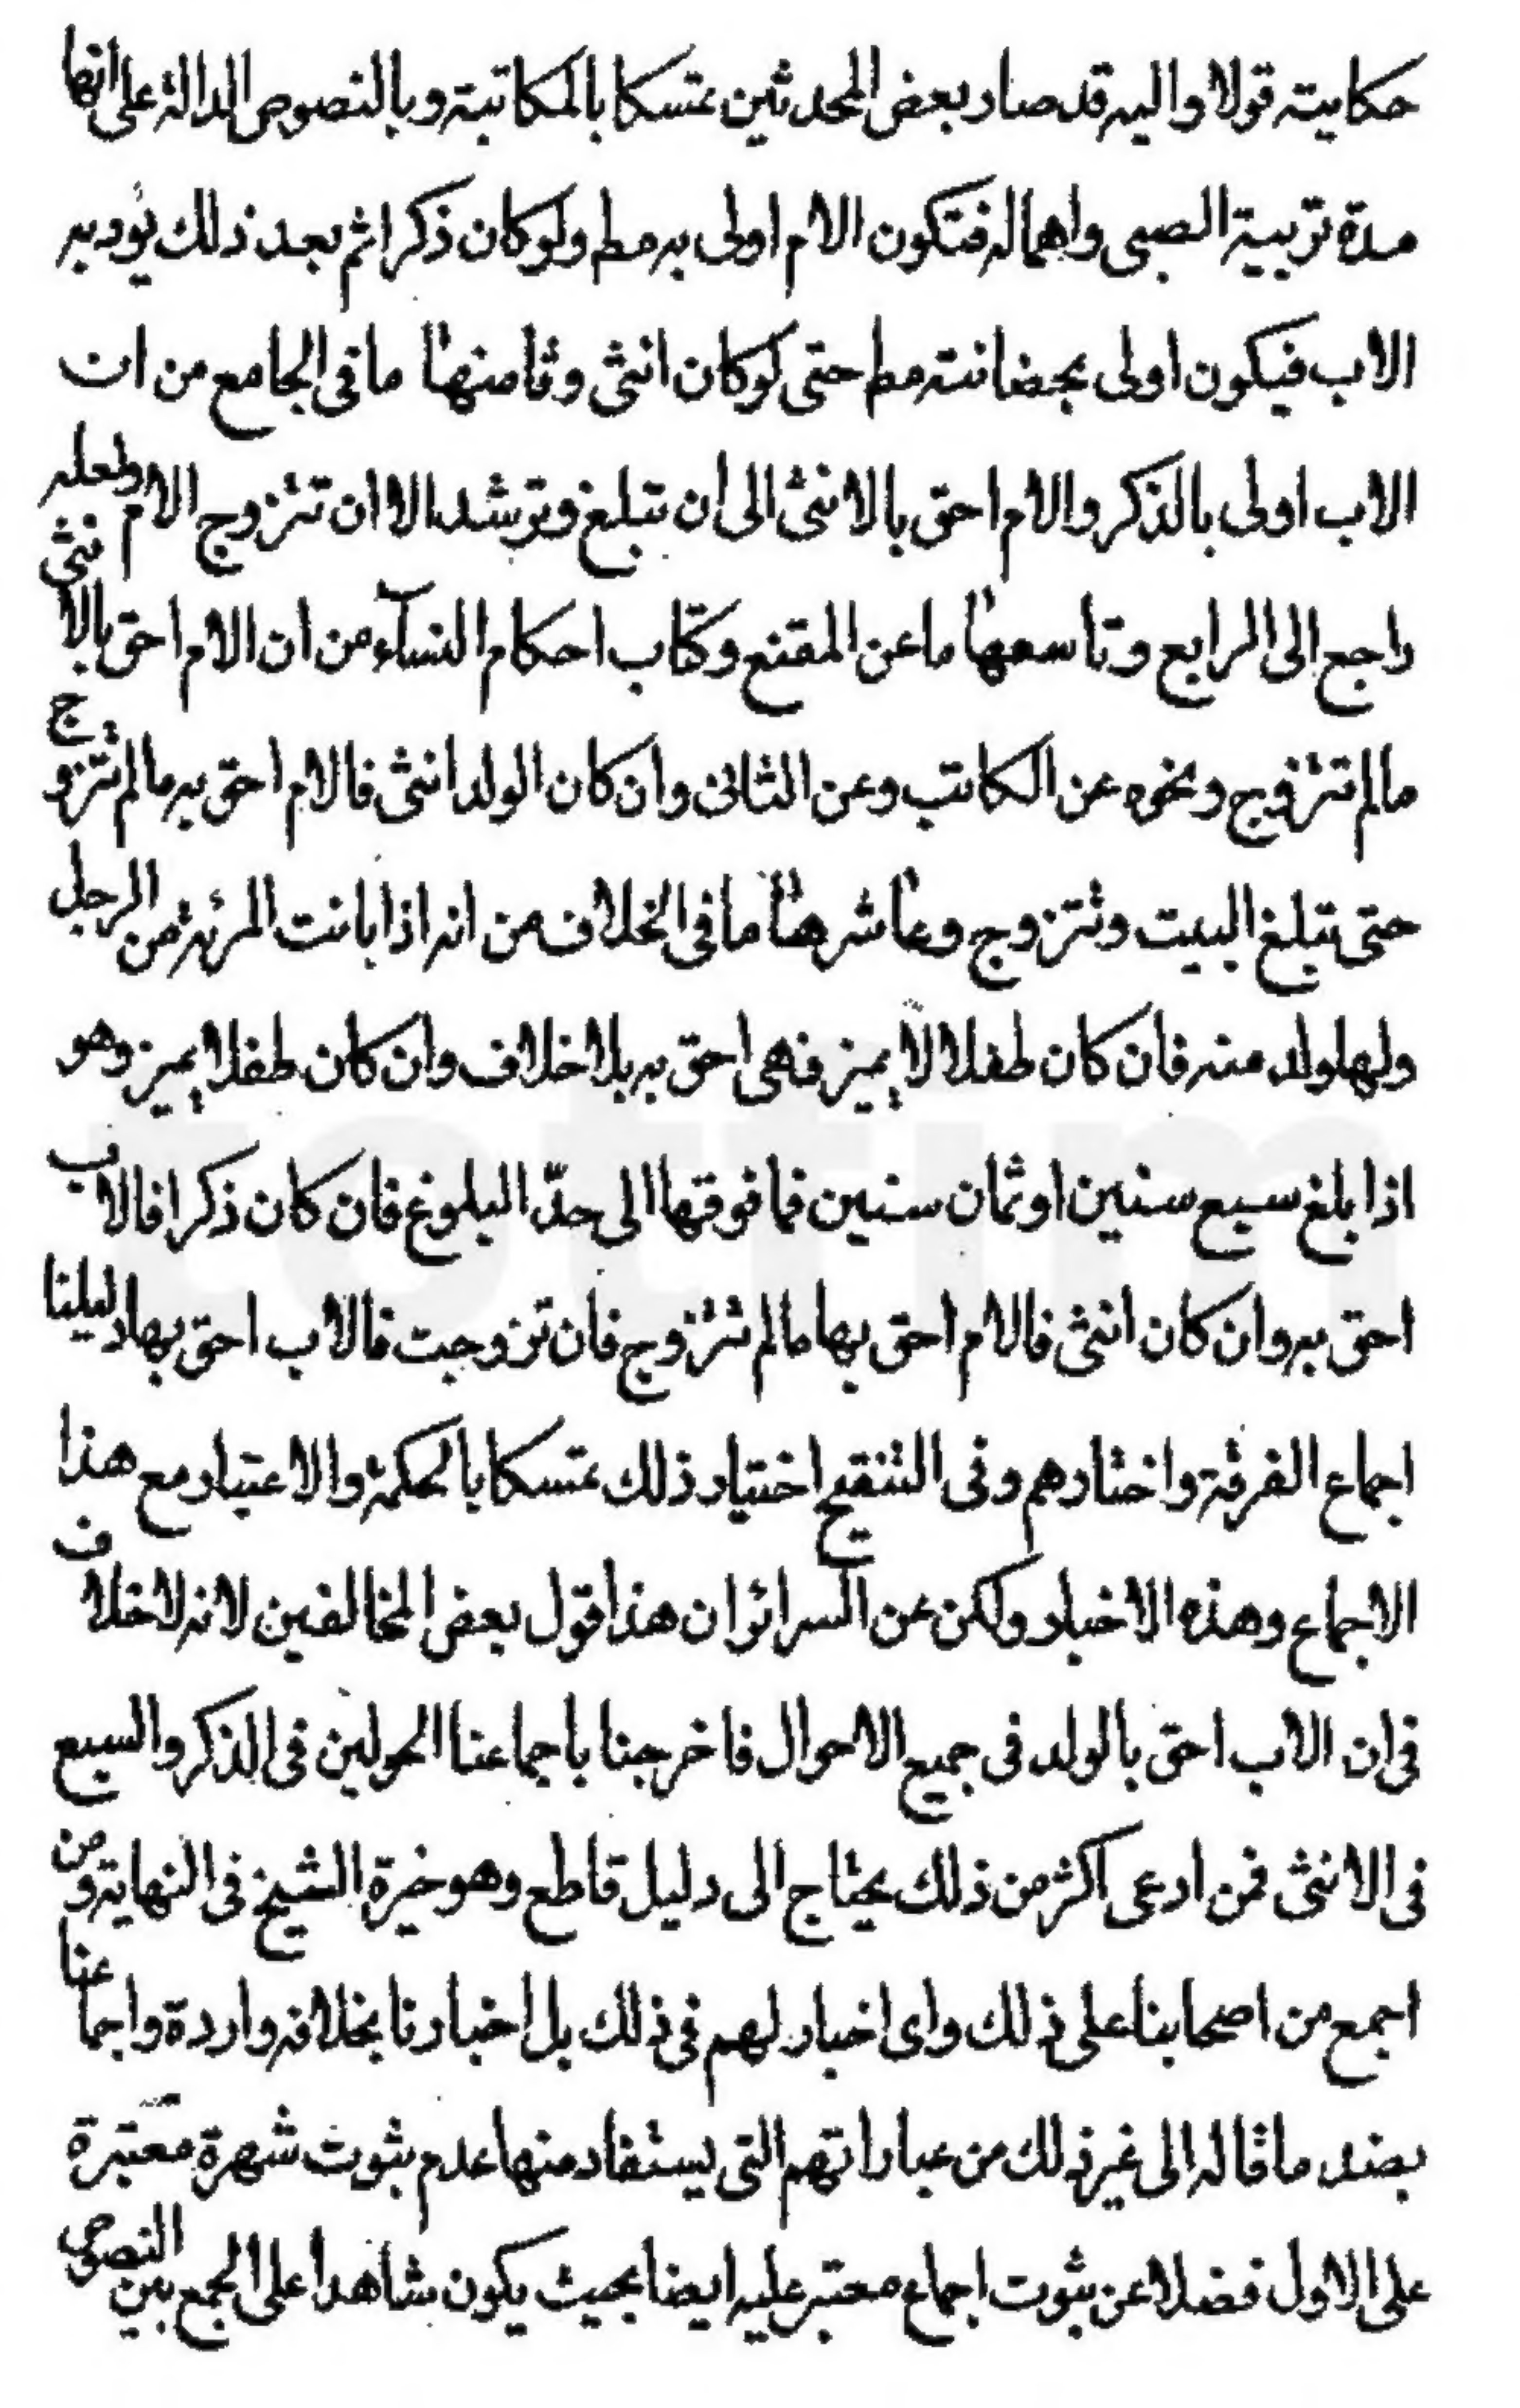 حكايته قولا واليه قد صار بعض المحدثين متمسكا بالمكاتبة وبالنصوص الدالة على انها
مدة تربية الصبى واهماله فتكون الام اولى به مط ولو كان ذكرا ثم بعد ذلك يؤدبه
الاب فيكون اولى بحضانته مط حتى لو كان انثى وثامنها ما فى الجامع من ان
الاب اولى بالذكر والام احق بالانثى الى ان تبلغ وترشد الا ان تتزوج الام ولعله
راجع الى الرابع وتاسعها ما عن المقنع وكتاب احكام النساء من ان الام احق بالانثى
ما لم تتزوج ونحوه عن الكاتب وعن الثانى وان كان الولد انثى فالام احق به ما لم تتزوج
حتى تبلغ البيت وتتزوج وعاشرها ما فى الخلاف من انه اذا بانت المرئة من الرجل
ولها ولد منه فان كان طفلا لا يميز فهى احق به بلا خلاف وان كان طفلا يميز وهو
اذا بلغ سبع سنين او ثمان سنين فما فوقها الى حدّ البلوغ فان كان ذكرا فالاب
احق به وان كان انثى فالام احق بها ما لم تتزوج فان تزوجت فالاب احق بها دليلنا
اجماع الفرقة واخبارهم وفى التنقيح اختيار ذلك متمسكا بالحكمة والاعتبار مع هذا
الاجماع وهذه الاخبار ولكن عن السرائر ان هذا قول بعض المخالفين لانه لا خلاف
فى ان الاب احق بالولد فى جميع الاحوال فاخرجنا باجماعنا الحولين فى الذكر والسبع
فى الانثى فمن ادعى اكثر من ذلك يحتاج الى دليل قاطع وهو خيرة الشيخ فى النهاية ومن
اجمع من اصحابنا على ذلك واى اخبار لهم فى ذلك بل اخبارنا بخلافه واردة واجماعنا
بضد ما قاله الى غير ذلك من عباراتهم التى يستفاد منها عدم ثبوت شهرة معتبرة
على الاول فضلا عن ثبوت اجماع معتبر عليه ايضا بحيث يكون شاهدا على الجمع بين النصوص